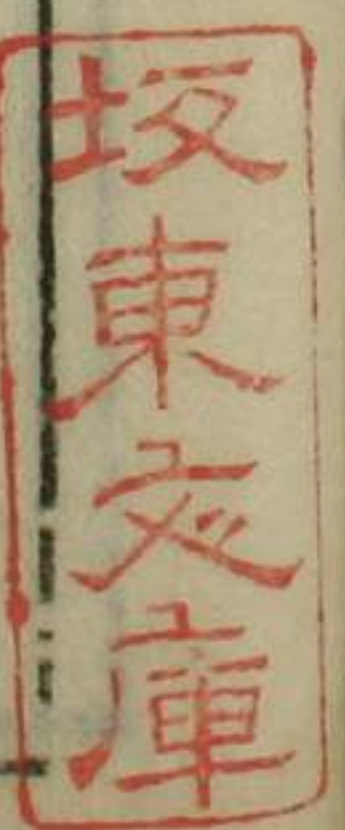 坂東文庫